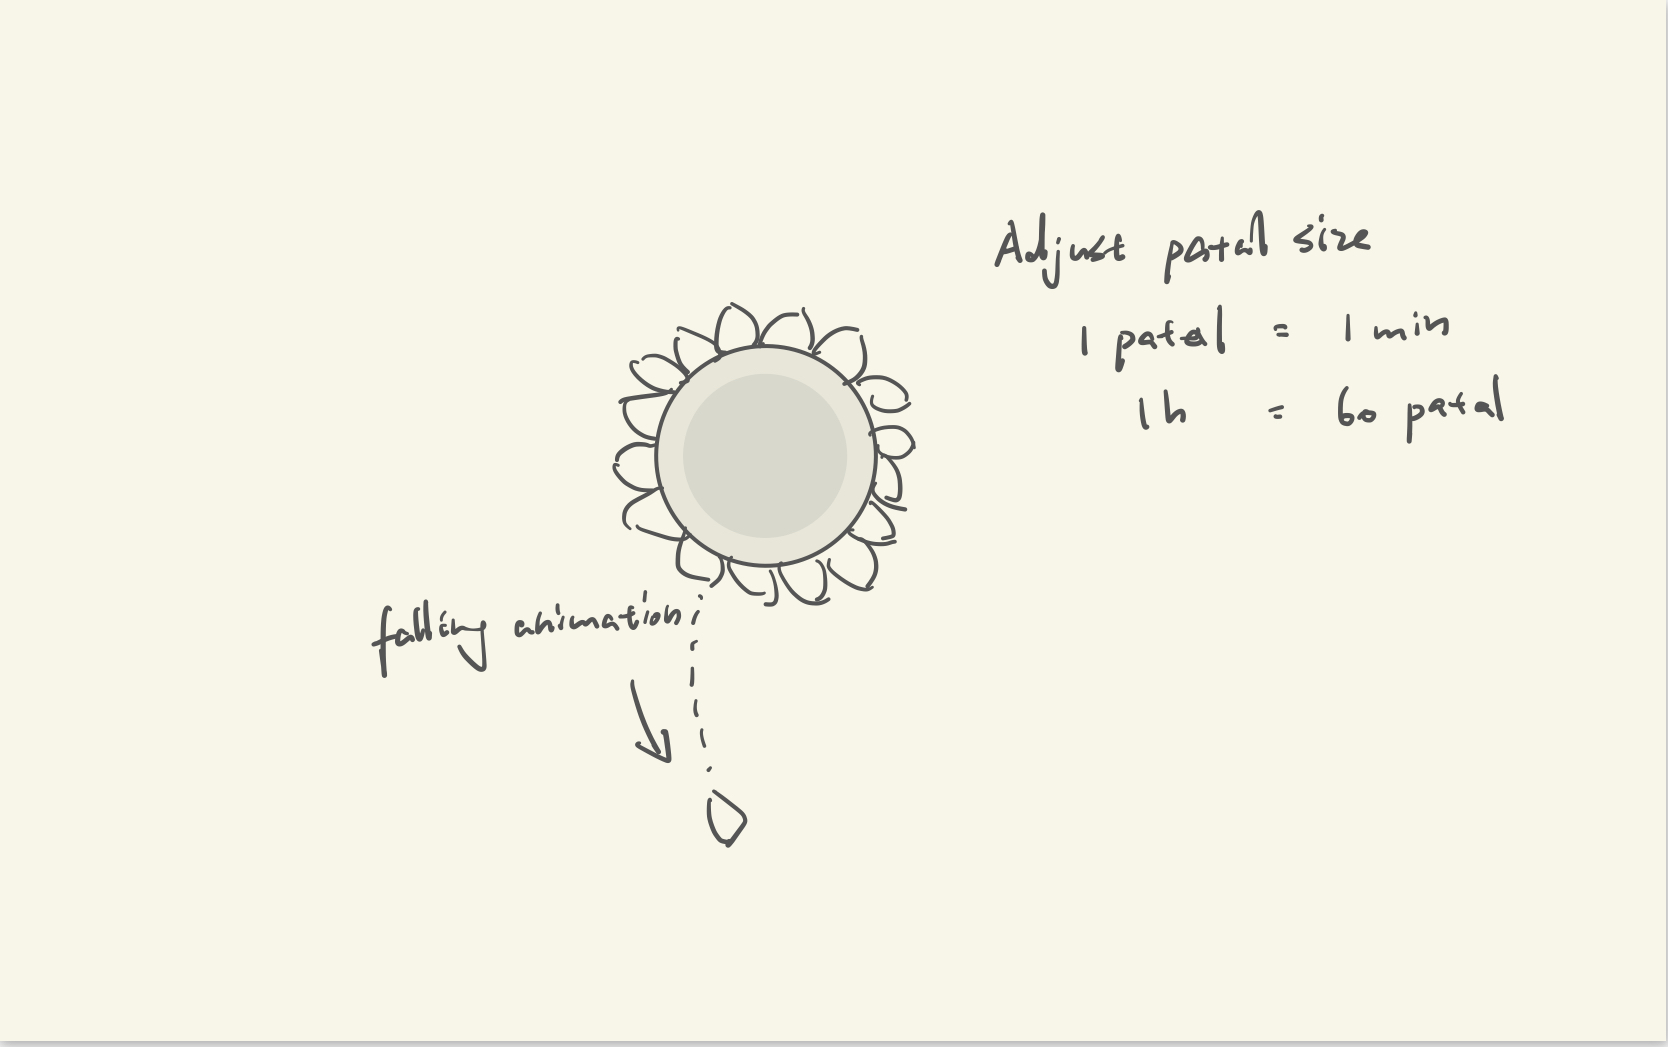 Adjust patal size
1 patal = 1 min
1h = 60 patal
falling animation